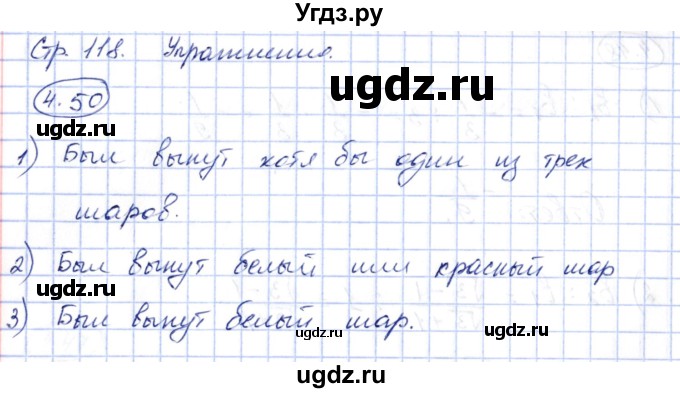 Угдз.ру
Стр. 118. Упражнения.
4.50
ugdz.ru
1) Был вынут хотя бы один из трех
шаров.
ugdz.ru
2) Был вынут белый или красный шар
ugdz.ru
3) Был вынут белый шар.
ugdz.ru
ugdz.ru
ugdz.ru